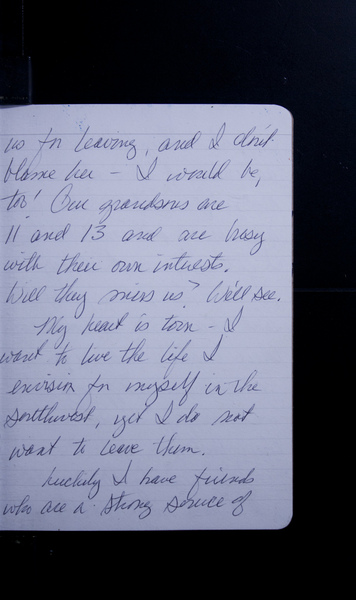 us for leaving, and I don't
blame her – I would be,
too! Our grandsons are
11 and 13 and are busy
with their own interests.
Will they miss us? We'll see.
My heart is torn – I
want to live the life I
envision for myself in the
Southwest, yet I do not
want to leave them.
Luckily I have friends
who are a strong source of